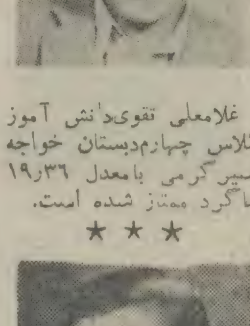 غلامعلی تقوی‌دانش آموز
کلاس چهارم‌دبستان خواجه
نصیر گرمی بامعدل ۱۹٫۳۶
شاگرد ممتاز شده است.
★ ★ ★